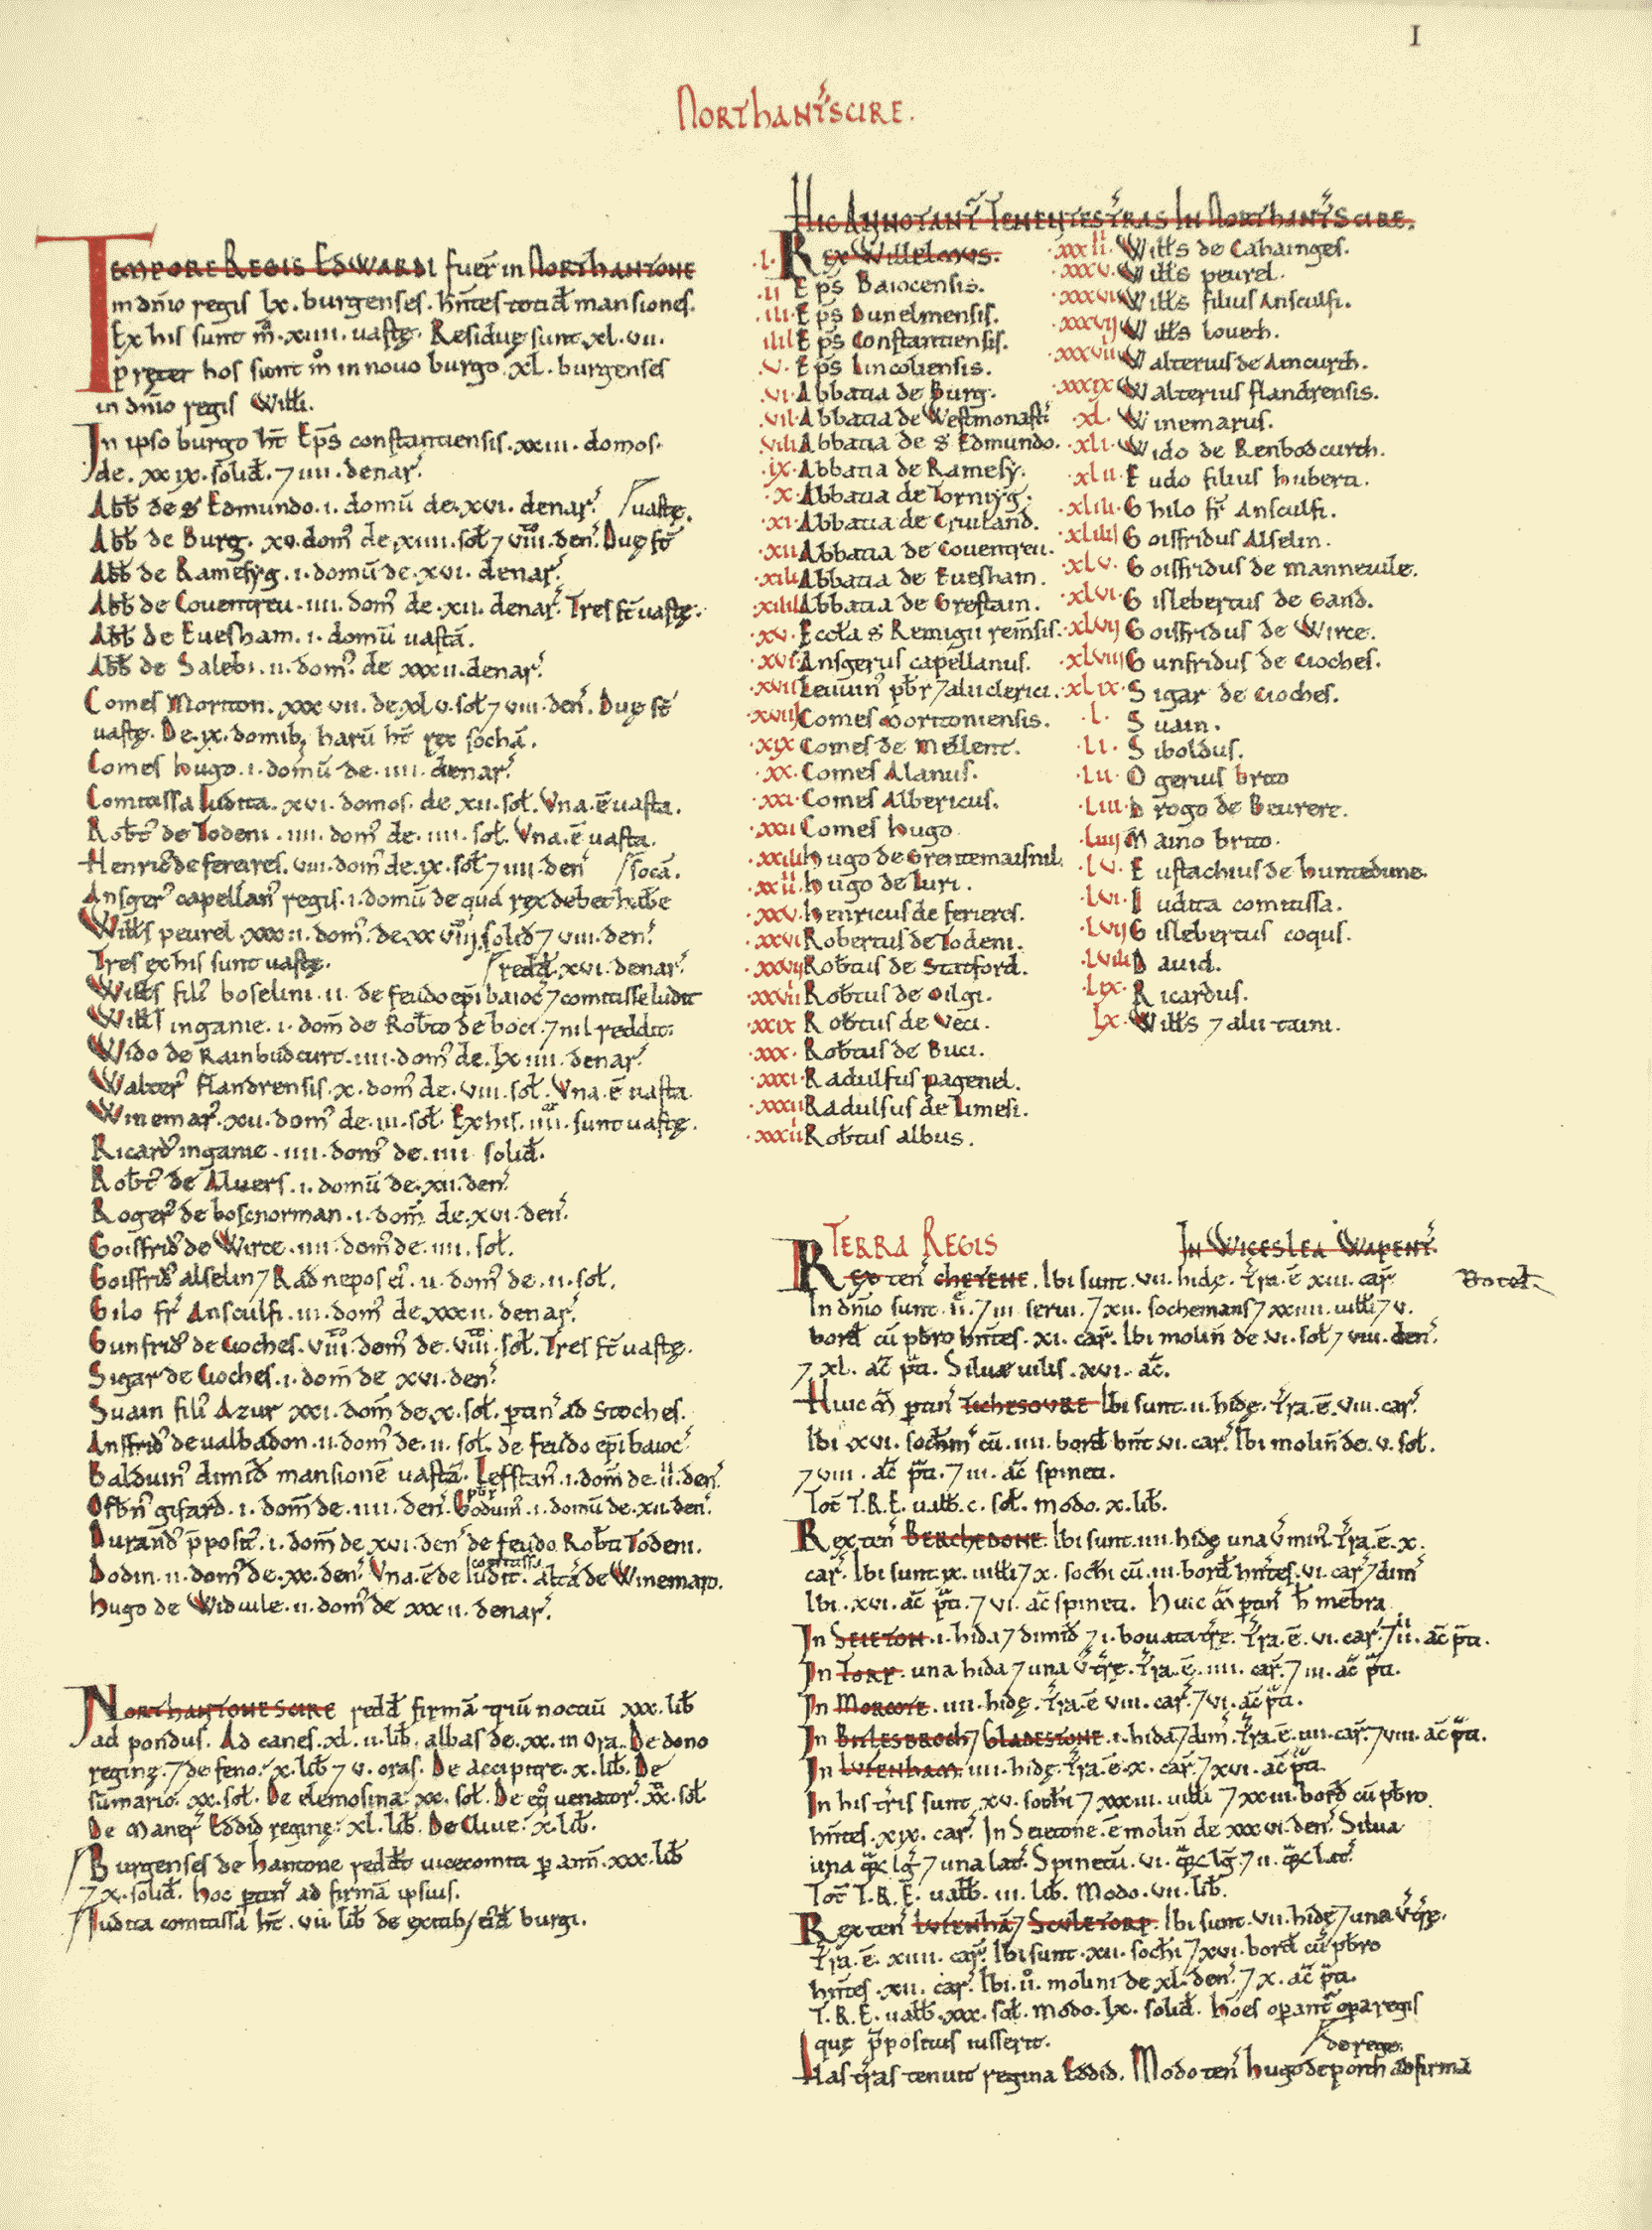 I
NORTHANT'SCIRE.
TEMPORE REGIS EDWARDI fuer̄ in NORTHANTONE
in dn̄io regis .lx. burgenses. hn̄tes totid̄ mansiones.
Ex his sunt m̊. xiiii. uastę. Residuę sunt .xl. vii.
Pręter hos sunt m̊ in nouo burgo .xl. burgenses
in dn̄io regis Willi.
In ipso burgo ht̄ Ep̄s constantiensis .xxiii. domos.
de .xxix. solid̄. ⁊ iiii. denar'.
Abb̄ de S' Edmundo .i. domū de .xvi. denar'. / uastę.
Abb̄ de Burg. xv. dom' de .xiiii. sol̄ ⁊ viii. den'. Duę st̄
Abb̄ de Ramesyg. i. domū de .xvi. denar'.
Abb̄ de Couentreu. iiii. dom' de .xii. denar'. Tres st̄ uastę.
Abb̄ de Euesham. i. domū uastā.
Abb̄ de Salebi. ii. dom' de xxxii. denar'.
Comes Moriton. xxxvii. de .xl v. sol̄ ⁊ viii. den'. Duę st̄
uastę. De .ix. domib; harū ht̄ rex sochā.
Comes hugo .i. domū de .iiii. denar'.
Comitissa Iudita. xvi. domos. de xii. sol̄. Vna .ē uasta.
Rob̄t' de Todeni. iiii. dom' de .iiii. sol̄. Vna .ē uasta.
Henric' de fereires. viii. dom' de .ix. sol̄ ⁊ iiii. den' / socā.
Ansger' capellan' regis .i. domū de qua rex debet hab̄e
Will̄s peurel .xxxii. dom'. de .xxviii. solid̄ ⁊ viii. den'.
Tres ex his sunt uastę. / redd̄ .xvi. denar'.
Will̄s fili' boselini .ii. de feudo ep̄i baioc' ⁊ comitisse Iudit
Will̄s inganie. i. dom̄ de Rob̄to de boci. ⁊ nil reddit.
Wido de Rainbudcurt. iiii. dom' de .lxiiii. denar'.
Walter' flandrensis .x. dom' de .viii. sol̄. Vna .ē uasta.
Winemar'. xii. dom' de .iii. sol̄. Ex his .iiii. sunt uastę.
Ricard' inganie .iiii. dom' de .iiii solid̄.
Rob̄t' de Aluers .i. domū de .xii. den'.
Roger' de boscnorman .i. dom̄ de .xvi. den'.
Goisfrid' de Wirce .iiii. dom' de .iiii. sol̄.
Goisfrid' alselin ⁊ Rad̄ nepos ei'. ii. dom' de .ii. sol̄.
Gilo fr̄ Ansculfi .iii. dom' de .xxxii. denar'.
Gunfrid' de Cioches. viii. dom' de .viii. sol̄. Tres st̄ uastę.
Sigar de Cioches .i. dom̄ de xvi. den'.
Suain fili' Azur xxi. dom' de .x. sol̄. ptin' ad Stoches.
Ansfrid' de ualbadon .ii. dom' de .ii. sol̄. de feudo ep̄i baioc'
Balduin' dimid̄ mansionē uastā. Lefstan' .i. dom̄ de .iiii. den'.
Osb̄n' gifard .i. dom̄ de .iiii. den'. Goduin' pb̄r .i. domū de .xii. den'.
Durand' p̄posit' .i. dom̄ de .xvi. den' de feudo Rob̄ti Todeni.
Dodin .ii. dom' de .xx. den'. Vna .ē de Iudit' comitissa. altā de Winemaro.
hugo de Widuile .ii. dom' de xxxii. denar'.
NORTHANTONESCIRE redd̄ firmā triū noctiū xxx. lib̄
ad pondus. Ad canes .xl.ii. lib̄. albas de .xx. in Ora. De dono
reginę. ⁊ de feno: x. lib̄ ⁊ v. oras. De accipitre. x. lib̄. De
sūmario. xx. sol̄. De elemosina. xx. sol̄. De eq' uenator'. xx. sol̄
De Maner' Eddid reginę: xl. lib̄. De Cliue: x. lib̄.
Burgenses de hantone reddt̄ uicecomiti p anñ .xxx. lib̄
⁊ x. solid̄. hoc ptin' ad firmā ipsius.
Iudita comitissa ht̄ .vii. lib̄ de exitib; eid̄ burgi.
HIC ANNOTANT' TENENTES TRAS IN NORTHANT'SCIRE.
.I. REX WILLELMVS.
.ii. Ep̄s Baiocensis.
.iii. Ep̄s Dunelmensis.
iiii. Ep̄s Constantiensis.
.v. Ep̄s Lincoliensis.
.vi. Abbatia de Burg.
.vii. Abbatia de Westmonast'.
.viii. Abbatia de S' Edmundo.
.ix. Abbatia de Ramesy.
.x. Abbatia de Torniyg.
.xi. Abbatia de Cruiland.
.xii. Abbatia de Couentreu.
.xiii. Abbatia de Euesham.
.xiiii. Abbatia de Grestain.
.xv. Eccl̄a S' Remigii rem̄sis.
.xvi. Ansgerus capellanus.
.xvii. Leuuin' pb̄r ⁊ alii clerici.
.xviii. Comes Moritoniensis.
.xix. Comes de Mellent.
.xx. Comes Alanus.
.xxi. Comes Albericus.
.xxii. Comes hugo
.xxiii. hugo de Grentemaisnil.
.xxiiii. hugo de Iuri.
.xxv. henricus de ferieres.
.xxvi. Robertus de Todeni.
.xxvii. Rob̄tus de Statford.
.xxviii. Rob̄tus de Oilgi.
.xxix. Rob̄tus de Veci.
.xxx. Rob̄tus de Buci.
.xxxi. Radulfus pagenel.
.xxxii. Radulfus de Limesi.
.xxxiii. Rob̄tus albus.
.xxxiiii. Will̄s de Cahainges.
.xxxv. Will̄s peurel.
.xxxvi. Will̄s filius Ansculfi.
.xxxvii. Will̄s louech.
.xxxviii. Walterius de Aincurth.
.xxxix. Walterius flandrensis.
.xl. Winemarus.
.xli. Wido de Renbodcurth.
.xlii. Eudo filius huberti.
.xliii. Ghilo fr̄ Ansculfi.
.xliiii. Goisfridus Alselin.
.xlv. Goisfridus de manneuile.
.xlvi. Gislebertus de Gand.
.xlvii. Goisfridus de Wirce.
.xlviii. Gunfridus de Cioches.
.xlix. Sigar de Cioches.
.l. Suain.
.li. Siboldus.
.lii. Ogerius brito
.liii. Drogo de Beurere.
.liiii. Maino brito.
.lv. Eustachius de huntedune.
.lvi. Iudita comitissa.
.lvii. Gislebertus coqus.
.lviii. Dauid.
.lix. Ricardus.
.lx. Will̄s ⁊ alii taini.
TERRA REGIS IN WICESLEA WAPENT'.
REX ten' CHETENE. Ibi sunt .vii. hidę. Tra .ē xiii. car'. Botel.
In dn̄io sunt .ii. ⁊ iii. serui. ⁊ xii. sochemans ⁊ xxiiii. uill̄i ⁊ v.
bord̄ cū pb̄ro hn̄tes .xi. car'. Ibi molin̄ de .vi. sol̄ ⁊ viii. den'.
⁊ xl. ac̄ p̄ti. Siluæ uilis .xvi. ac̄.
Huic m̄ ptin' TICHESOVRE. Ibi sunt .ii. hidę. Tra .ē. viii. car'.
Ibi .xvi. soch̄m' cū .iiii. bord̄ hn̄t .vi. car'. Ibi molin̄ de .v. sol̄.
⁊ viii. ac̄ p̄ti. ⁊ iii. ac̄ spineti.
Tot̄ T.R.E. ualb̄ .c. sol̄. modo .x. lib̄.
Rex ten' BERCHEDONE. Ibi sunt .iiii. hidę una v' min'. Tra .ē. x.
car'. Ibi sunt .ix. uill̄i ⁊ x. soch̄i cū .iii. bord̄ hn̄tes .vi. car' ⁊ dim'
Ibi .xvi. ac̄ p̄ti. ⁊ vi. ac̄ spineti. Huic m̄ ptin' h̄ mēbra
In SEIETON .i. hida ⁊ dimid̄ ⁊ i. bouata tre. Tra .ē. vi. car'. ⁊ ii. ac̄ p̄ti.
In TORP. una hida ⁊ una v' tre. Tra .ē. iiii. car'. ⁊ iii. ac̄ p̄ti.
In MORCOTE. iiii. hidę. Tra .ē viii. car'. ⁊ vi. ac̄ p̄ti.
In BITLESBROCH ⁊ GLADESTONE .i. hida ⁊ dim'. Tra .ē. iiii. car'. ⁊ viii. ac̄ p̄ti.
In LVFENHAM. iiii. hidę. Tra .ē. x. car'. ⁊ xvi. ac̄ p̄ti.
In his tris sunt .xv. soch̄i ⁊ xxxiii. uill̄i ⁊ xxiii. bord̄ cū pb̄ro
hn̄tes .xix. car'. In Seietone .ē molin̄ de xxxvi. den'. Silua
una q̄ lg̅ ⁊ una lat'. Spinetū .vi. q̄ lg̅ ⁊ ii. q̄ lat'.
Tot̄ T.R.E. ualb̄. iii. lib̄. Modo .vii. lib̄.
Rex ten' LVFENHĀ ⁊ SCVLETORP. Ibi sunt .vii. hidę ⁊ una v' tre.
Tra .ē. xiiii. car'. Ibi sunt .xii. soch̄i ⁊ xvi. bord̄ cū pb̄ro
hn̄tes .xii. car'. Ibi .ii. molini de xl. den'. ⁊ x. ac̄ p̄ti.
T.R.E. ualb̄ .xxx. sol̄. modo .lx. solid̄. hōes operant' opa regis
quę p̄positus iusserit. / de rege.
Has tras tenuit regina Eddid. Modo ten' hugo de porth ad firmā